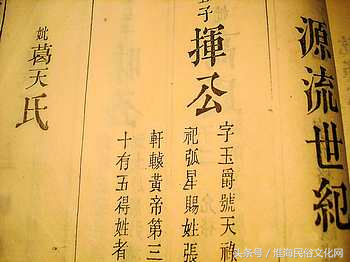 源流世紀
五子
揮公
字玉爵號天祿
祀弧星賜姓張
軒轅黃帝第三
十有五得姓者
妣葛天氏
头条号／淮河民俗文化网